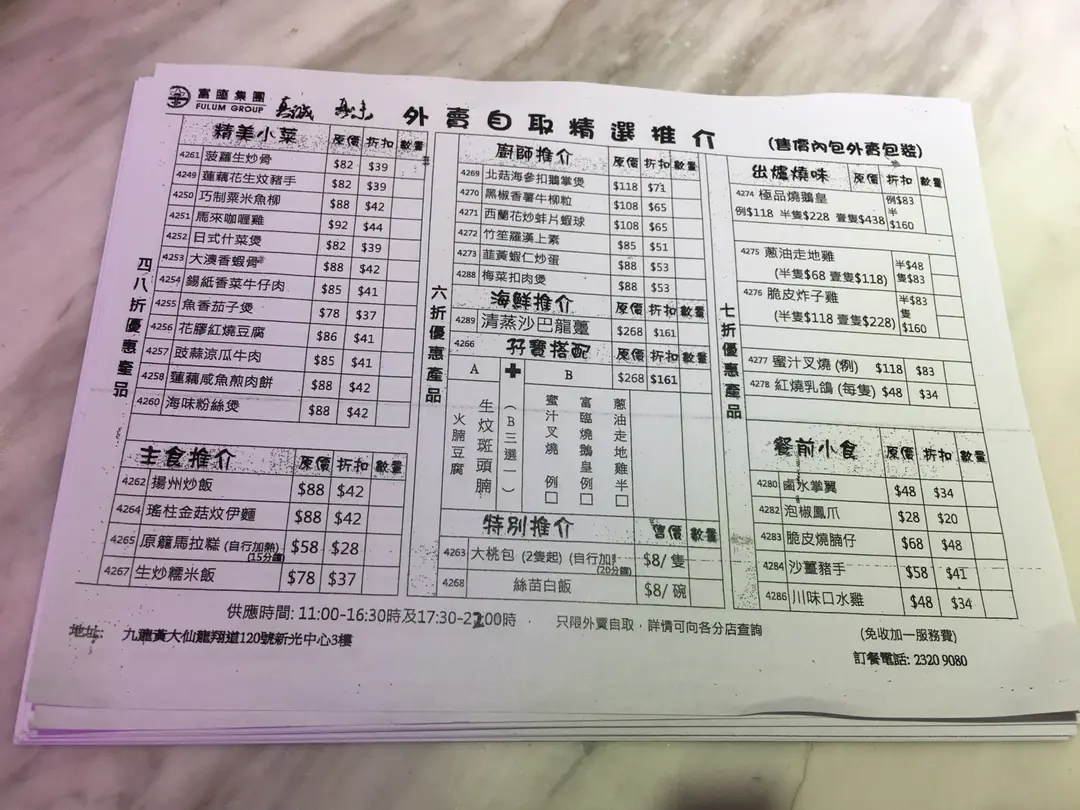 富臨集團
FULUM GROUP
外賣自取精選推介
(售價內包外賣包裝)
四八折優惠產品
精美小菜 原價 折扣 數量
4261 菠蘿生炒骨 $82 $39
4249 蓮藕花生炆豬手 $82 $39
4250 巧制粟米魚柳 $88 $42
4251 馬來咖喱雞 $92 $44
4252 日式什菜煲 $82 $39
4253 大澳香蝦骨 $88 $42
4254 錫紙香菜牛仔肉 $85 $41
4255 魚香茄子煲 $78 $37
4256 花膠紅燒豆腐 $86 $41
4257 豉蒜涼瓜牛肉 $85 $41
4258 蓮藕咸魚煎肉餅 $88 $42
4260 海味粉絲煲 $88 $42
主食推介 原價 折扣 數量
4262 揚州炒飯 $88 $42
4264 瑤柱金菇炆伊麵 $88 $42
4265 原籠馬拉糕 (自行加熱) $58 $28
(15分鐘)
4267 生炒糯米飯 $78 $37
六折優惠產品
廚師推介 原價 折扣 數量
4269 北菇海參扣鵝掌煲 $118 $71
4270 黑椒香薯牛柳粒 $108 $65
4271 西蘭花炒蚌片蝦球 $108 $65
4272 竹笙羅漢上素 $85 $51
4273 韮黃蝦仁炒蛋 $88 $53
4288 梅菜扣肉煲 $88 $53
海鮮推介 原價 折扣 數量
4289 清蒸沙巴龍躉 $268 $161
4266 孖寶搭配 原價 折扣 數量
A + B $268 $161
火腩豆腐
生炆斑頭腩
(B三選一)
蜜汁叉燒 例□
富臨燒鵝皇例□
蔥油走地雞半□
特別推介 售價 數量
4263 大桃包 (2隻起) (自行加 $8/ 隻
(20分鐘)
4268 絲苗白飯 $8/ 碗
七折優惠產品
出爐燒味 原價 折扣 數量
4274 極品燒鵝皇 例$83
例$118 半隻$228 壹隻$438 半$160
4275 蔥油走地雞 半$48
(半隻$68 壹隻$118) 隻$83
4276 脆皮炸子雞 半$83
(半隻$118 壹隻$228) 隻$160
4277 蜜汁叉燒 (例) $118 $83
4278 紅燒乳鴿 (每隻) $48 $34
餐前小食 原價 折扣 數量
4280 鹵水掌翼 $48 $34
4282 泡椒鳳爪 $28 $20
4283 脆皮燒腩仔 $68 $48
4284 沙薑豬手 $58 $41
4286 川味口水雞 $48 $34
供應時間: 11:00-16:30時及17:30-22:00時
只限外賣自取，詳情可向各分店查詢
(免收加一服務費)
地址: 九龍黃大仙龍翔道120號新光中心3樓
訂餐電話: 2320 9080